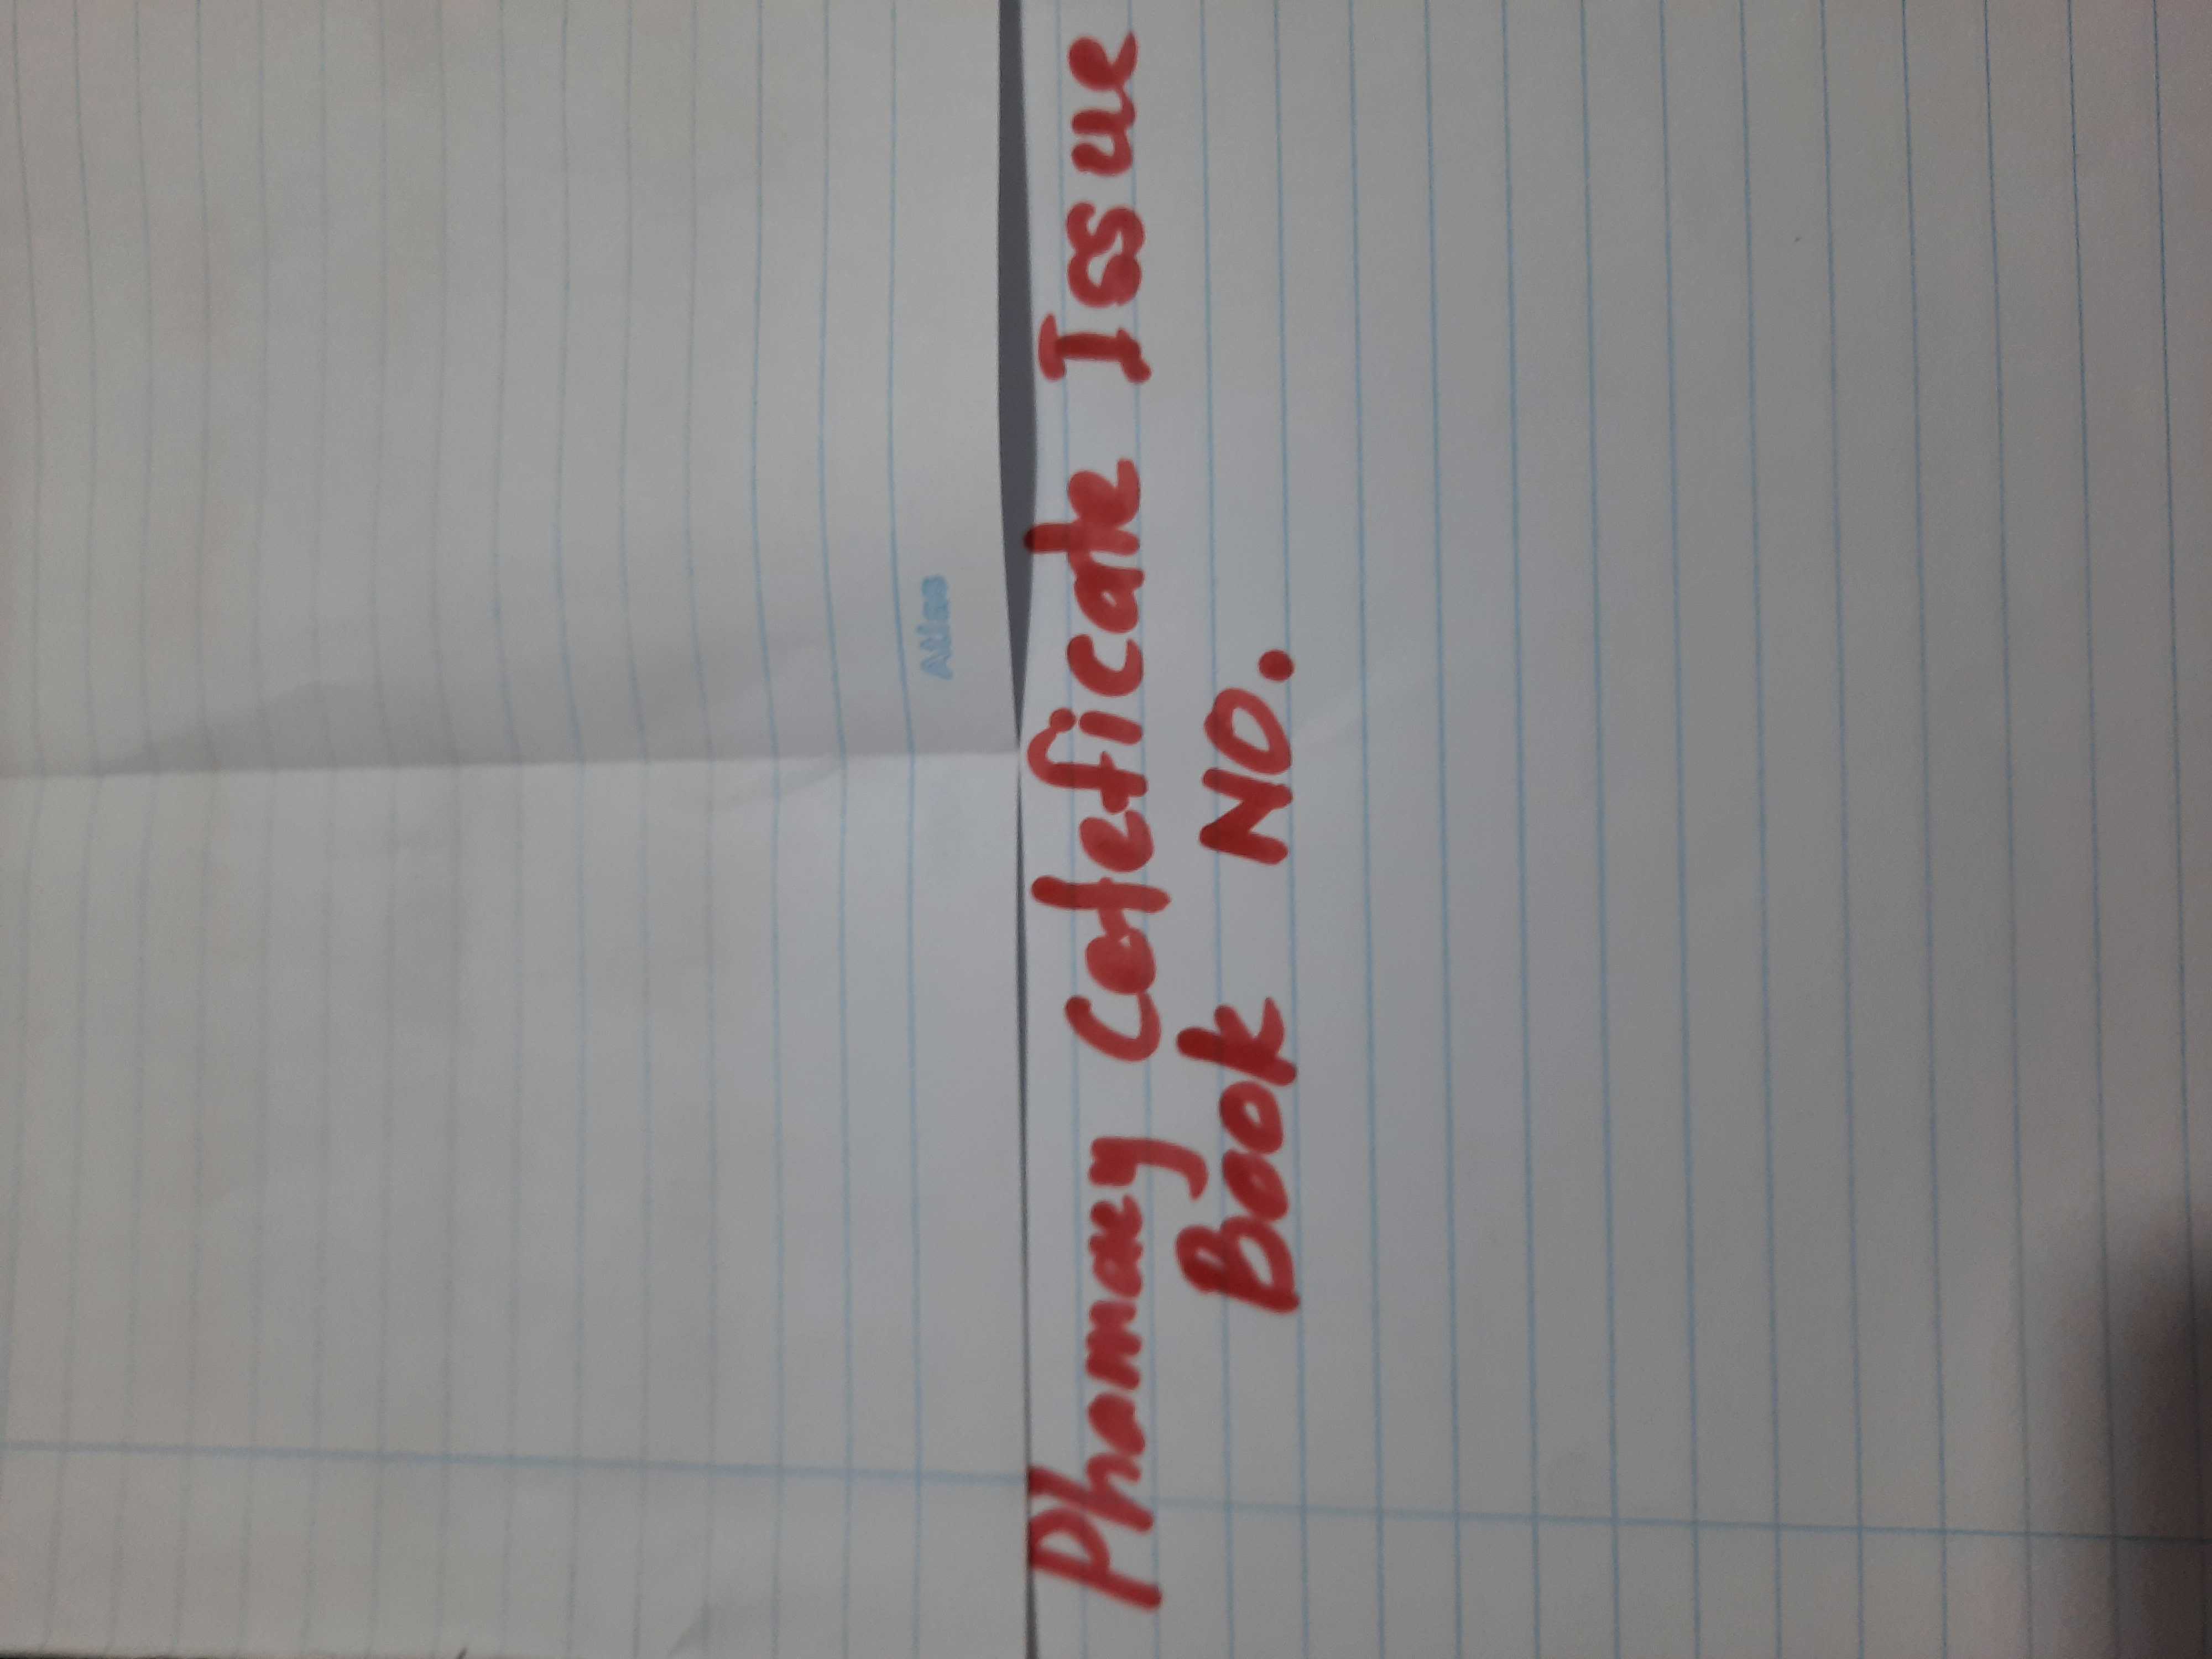 Atlas
Phamacy Ceteficate Issue
Book NO.